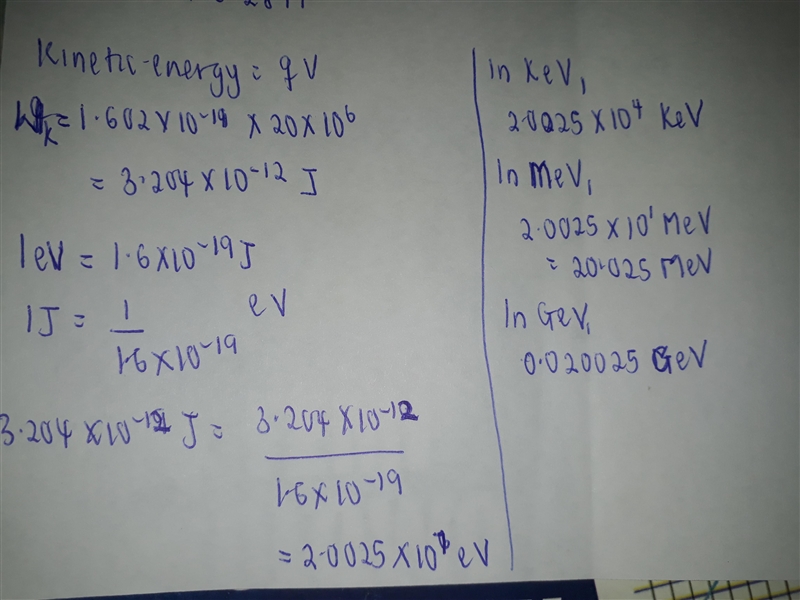 Kinetic-energy = qV
Wk = 1.602 × 10^-19 × 20 × 10^6
= 3.204 × 10^-12 J
1eV = 1.6 × 10^-19 J
1J = 1 / 1.6 × 10^-19 eV
3.204 × 10^-12 J = 3.204 × 10^-12 / 1.6 × 10^-19
= 2.0025 × 10^7 eV
In KeV,
2.0025 × 10^4 KeV
In MeV,
2.0025 × 10^1 MeV
= 20.025 MeV
In GeV,
0.020025 GeV